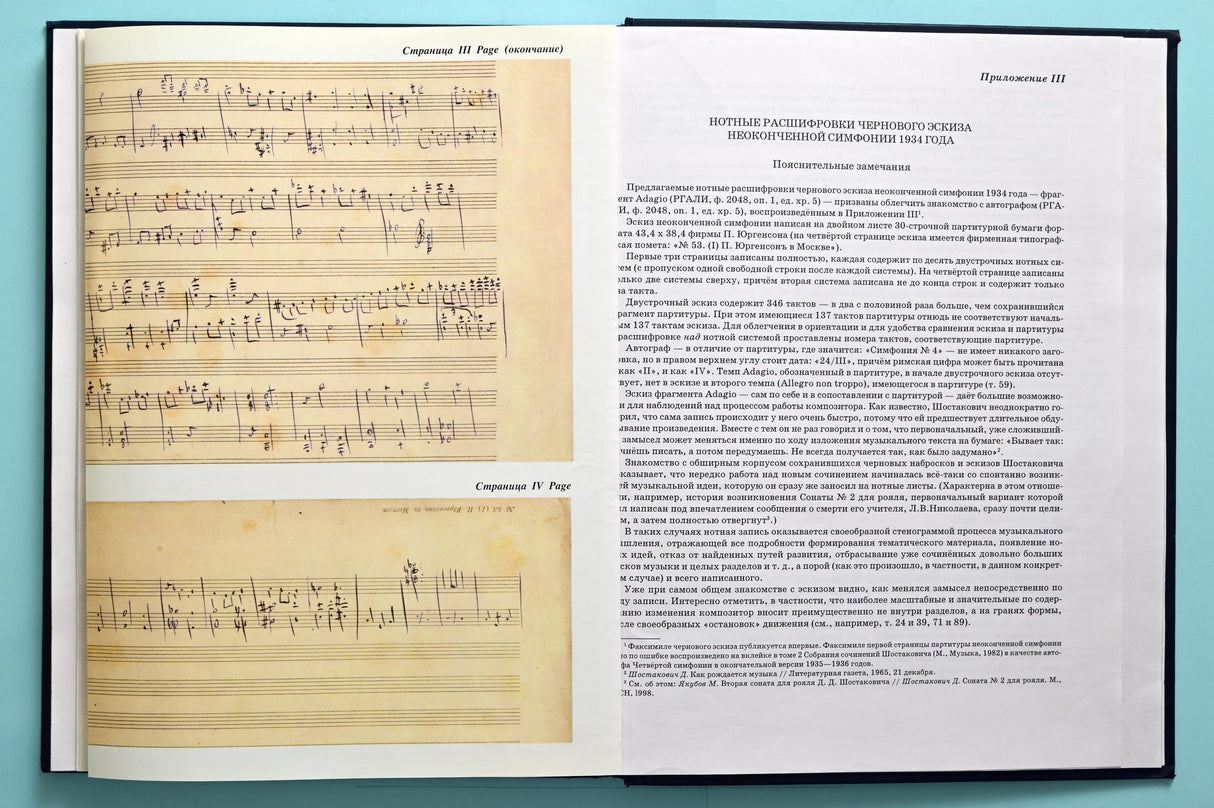 Страница III Page (окончание)
Страница IV Page
№ 53. (I) П. Юргенсонъ въ Москвѣ
Приложение III
НОТНЫЕ РАСШИФРОВКИ ЧЕРНОВОГО ЭСКИЗА
НЕОКОНЧЕННОЙ СИМФОНИИ 1934 ГОДА
Пояснительные замечания
Предлагаемые нотные расшифровки чернового эскиза неоконченной симфонии 1934 года — фраг-
ент Adagio (РГАЛИ, ф. 2048, оп. 1, ед. хр. 5) — призваны облегчить знакомство с автографом (РГА-
И, ф. 2048, оп. 1, ед. хр. 5), воспроизведённым в Приложении III¹.
Эскиз неоконченной симфонии написан на двойном листе 30-строчной партитурной бумаги фор-
ата 43,4 x 38,4 фирмы П. Юргенсона (на четвёртой странице эскиза имеется фирменная типограф-
кая помета: «№ 53. (I) П. Юргенсонъ в Москве»).
Первые три страницы записаны полностью, каждая содержит по десять двустрочных нотных си-
ем (с пропуском одной свободной строки после каждой системы). На четвёртой странице записаны
олько две системы сверху, причём вторая система записана не до конца строк и содержит только
ва такта.
Двустрочный эскиз содержит 346 тактов — в два с половиной раза больше, чем сохранившийся
рагмент партитуры. При этом имеющиеся 137 тактов партитуры отнюдь не соответствуют началь-
ым 137 тактам эскиза. Для облегчения в ориентации и для удобства сравнения эскиза и партитуры
расшифровке над нотной системой проставлены номера тактов, соответствующие партитуре.
Автограф — в отличие от партитуры, где значится: «Симфония № 4» — не имеет никакого заго-
овка, но в правом верхнем углу стоит дата: «24/III», причём римская цифра может быть прочитана
как «II», и как «IV». Темп Adagio, обозначенный в партитуре, в начале двустрочного эскиза отсут-
вует, нет в эскизе и второго темпа (Allegro non troppo), имеющегося в партитуре (т. 59).
Эскиз фрагмента Adagio — сам по себе и в сопоставлении с партитурой — даёт большие возможно-
и для наблюдений над процессом работы композитора. Как известно, Шостакович неоднократно го-
рил, что сама запись происходит у него очень быстро, потому что ей предшествует длительное обду-
ывание произведения. Вместе с тем он не раз говорил и о том, что первоначальный, уже сложивший-
замысел может меняться именно по ходу изложения музыкального текста на бумаге: «Бывает так:
чнёшь писать, а потом передумаешь. Не всегда получается так, как было задумано»².
Знакомство с обширным корпусом сохранившихся черновых набросков и эскизов Шостаковича
казывает, что нередко работа над новым сочинением начиналась всё-таки со спонтанно возник-
ей музыкальной идеи, которую он сразу же заносил на нотные листы. (Характерна в этом отноше-
и, например, история возникновения Сонаты № 2 для рояля, первоначальный вариант которой
л написан под впечатлением сообщения о смерти его учителя, Л.В.Николаева, сразу почти цели-
м, а затем полностью отвергнут³.)
В таких случаях нотная запись оказывается своеобразной стенограммой процесса музыкального
шления, отражающей все подробности формирования тематического материала, появление но-
х идей, отказ от найденных путей развития, отбрасывание уже сочинённых довольно больших
сков музыки и целых разделов и т. д., а порой (как это произошло, в частности, в данном конкрет-
м случае) и всего написанного.
Уже при самом общем знакомстве с эскизом видно, как менялся замысел непосредственно по
ду записи. Интересно отметить, в частности, что наиболее масштабные и значительные по содер-
анию изменения композитор вносит преимущественно не внутри разделов, а на гранях формы,
сле своеобразных «остановок» движения (см., например, т. 24 и 39, 71 и 89).
¹ Факсимиле чернового эскиза публикуется впервые. Факсимиле первой страницы партитуры неоконченной симфонии
о по ошибке воспроизведено на вклейке в томе 2 Собрания сочинений Шостаковича (М., Музыка, 1982) в качестве авто-
фа Четвёртой симфонии в окончательной версии 1935—1936 годов.
² Шостакович Д. Как рождается музыка // Литературная газета, 1965, 21 декабря.
³ См. об этом: Якубов М. Вторая соната для рояля Д. Д. Шостаковича // Шостакович Д. Соната № 2 для рояля. М.,
CH, 1998.